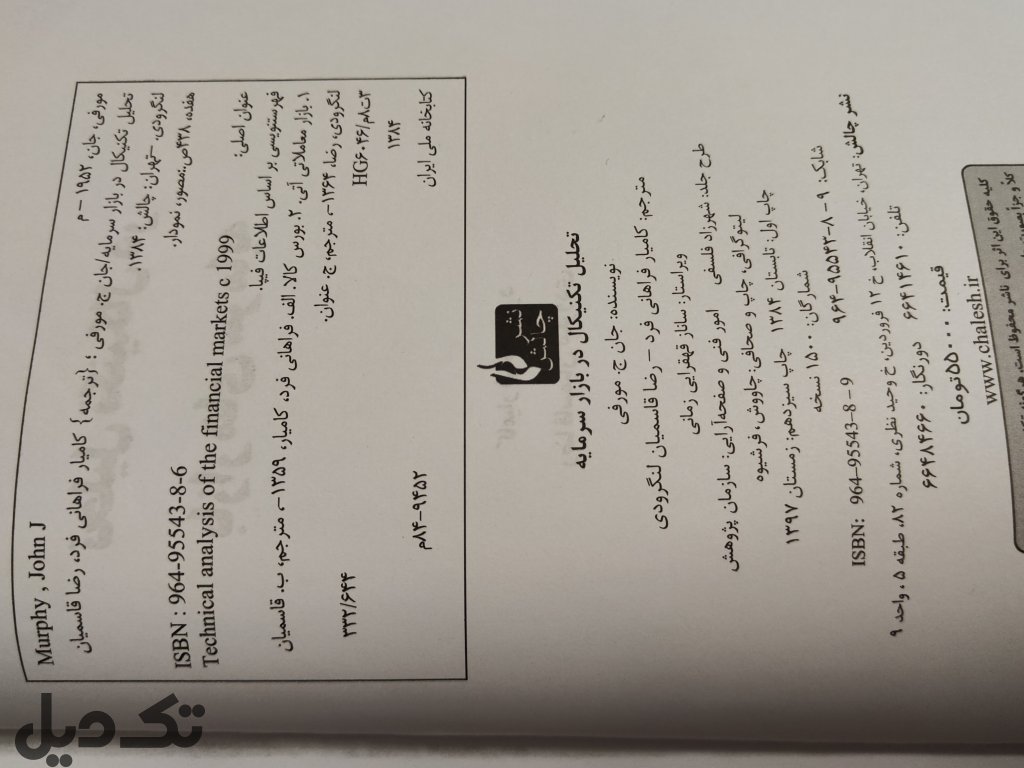 Murphy , John J
مورفی، جان، ۱۹۵۲ - م
تحلیل تکنیکال در بازار سرمایه/جان ج. مورفی ؛ {ترجمه} کامیار فراهانی فرد، رضا قاسمیان
لنگرودی. -تهران: چالش: ۱۳۸۴.
هفده، ۴۳۸ص.:مصور، نمودار.
ISBN : 964-95543-8-6
Technical analysis of the financial markets c 1999
عنوان اصلی:
فهرستنویسی بر اساس اطلاعات فیپا.
۱. بازار معاملاتی آتی. ۲. بورس کالا. الف. فراهانی فرد، کامیار، ۱۳۵۹-، مترجم. ب. قاسمیان
لنگرودی، رضا، ۱۳۶۴-، مترجم. ج. عنوان.
۳۳۲/۶۴۴
HG۶۰۴۶/م۸ت۳
۱۳۸۴
م۸۴-۹۴۵۲
کتابخانه ملی ایران
نشر چالش
تحلیل تکنیکال در بازار سرمایه
نویسنده: جان ج. مورفی
مترجم: کامیار فراهانی فرد - رضا قاسمیان لنگرودی
ویراستار: ساناز قهقرایی زمانی
طرح جلد: شهرزاد فلسفی امور فنی و صفحه‌آرایی: سازمان پژوهش
لیتوگرافی، چاپ و صحافی: چاووش، فرشیوه
چاپ اول: تابستان ۱۳۸۴ چاپ سیزدهم: زمستان ۱۳۹۷
شمارگان: ۱۵۰۰ نسخه
شابک: ۹-۸-۹۵۵۴۳-۹۶۴ ISBN: 964-95543-8-9
نشر چالش: تهران، خیابان انقلاب، خ ۱۲ فروردین، خ وحید نظری، شماره ۸۲، طبقه ۵، واحد ۹
تلفن: ۶۶۴۱۴۶۱۰ دورنگار: ۶۶۴۸۴۶۶۰
قیمت: ۵۵۰۰۰تومان
www.chalesh.ir
کلیه حقوق این اثر برای ناشر محفوظ است.
تک دیل